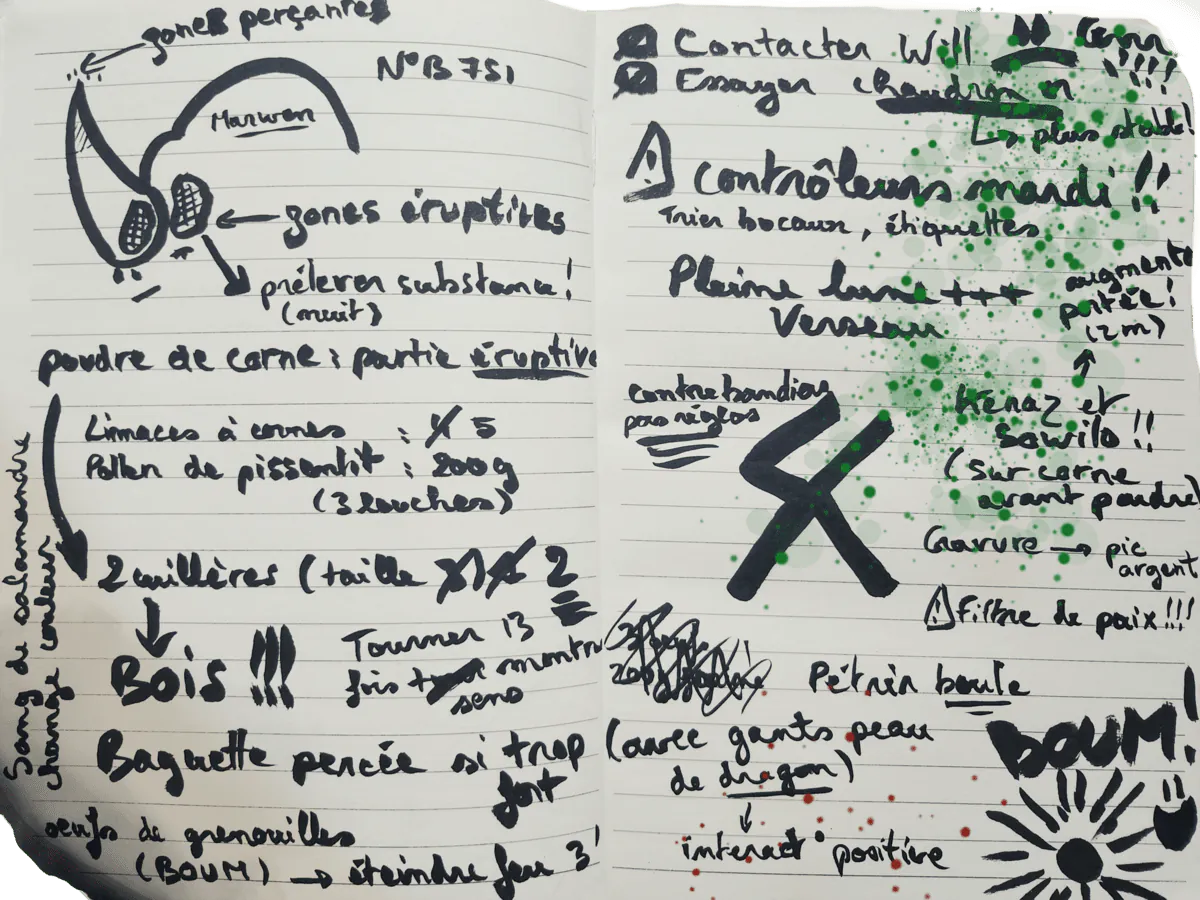 zones perçantes
N°B 751
Marwen
zones éruptives
prélever substance!
(nuit)
poudre de corne : partie éruptive
Limaces à cornes : 5
Pollen de pissenlit : 200g
(3 louches)
2 cuillères (taille 2
Bois !!!
Tourner 13
fois montre
sens
Baguette percée si trop
fort
oeufs de grenouilles
(BOUM) → éteindre feu 3'
Sang de salamandre
change couleur
Contacter Will
Essayer chaudron or
Ls plus stable!
⚠ contrôleurs mardi !!
Trier bocaux, étiquettes
Pleine lune +++
Verseau
augmente
portée!
(2m)
contrebandiers
pas réglos
Kenaz et
Sowilo !!
(sur corne
avant poudre)
Gravure → pic
argent
⚠ Filtre de paix !!!
Pétrir boule
(avec gants peau
de dragon)
interact° positive
BOUM!